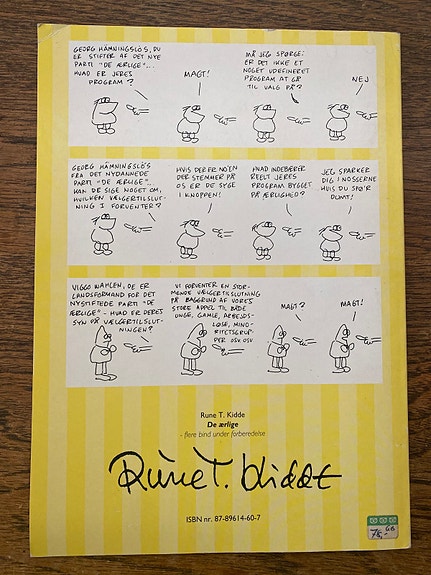 GEORG HÄMNINGSLÖS, DU
ER STIFTER AF DET NYE
PARTI "DE ÆRLIGE"...
HVAD ER JERES
PROGRAM?
MAGT!
MÅ JEG SPØRGE:
ER DET IKKE ET
NOGET UDEFINERET
PROGRAM AT GÅ
TIL VALG PÅ?
NEJ
GEORG HÄMNINGSLÖS
FRA DET NYDANNEDE
PARTI "DE ÆRLIGE"...
KAN DE SIGE NOGET OM,
HVILKEN VÆLGERTILSLUT-
NING I FORVENTER?
HVIS DER ER NO'EN
DER STEMMER PÅ
OS ER DE SYGE
I KNOPPEN!
HVAD INDEBÆRER
REELT JERES
PROGRAM BYGGET
PÅ ÆRLIGHED?
JEG SPARKER
DIG I NOSSERNE
HVIS DU SPØ'R
DUMT!
VIGGO WAHLEN, DE ER
LANDSFORMAND FOR DET
NYSTIFTEDE PARTI "DE
ÆRLIGE" - HVAD ER DERES
SYN PÅ VÆLGERTILSLUT-
NINGEN?
VI FORVENTER EN STOR-
MENDE VÆLGERTILSLUTNING
PÅ BAGGRUND AF VORES
STORE APPEL TIL BÅDE
UNGE, GAMLE, ARBEJDS-
LØSE, MINO-
RITETSGRUP-
PER OSV OSV
MAGT?
MAGT!
Rune T. Kidde
De ærlige
- flere bind under forberedelse
Rune T. Kidde
ISBN nr. 87-89614-60-7
75,-